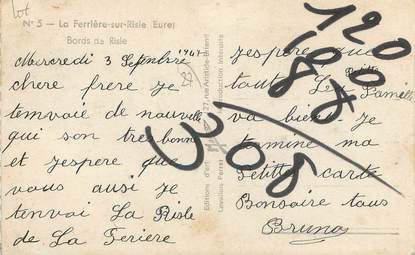 lot
N° 5 - La Ferrière-sur-Risle (Eure)
Bords de Risle
Mercredi 3 Septembre 1947
chere frere je
tenvoie de nouvelle
qui son tres bonne
et jespere que
vous ausi je
tenvoi La Risle
de La Feriere
Editions d'art
27, rue Aristide-Briand
Levallois-Perret
Reproduction interdite
jespere que
tout La petite Famelle
va bien je
termine ma
Petitte carte
Bonsoire tous
Bruno
120
308